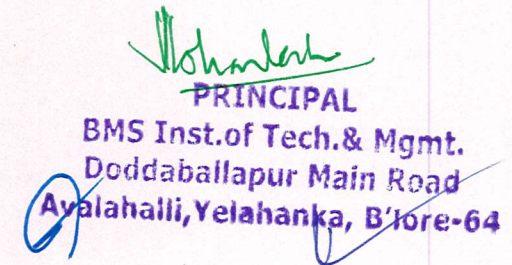 PRINCIPAL
BMS Inst.of Tech.& Mgmt.
Doddaballapur Main Road
Avalahalli,Yelahanka, B'lore-64